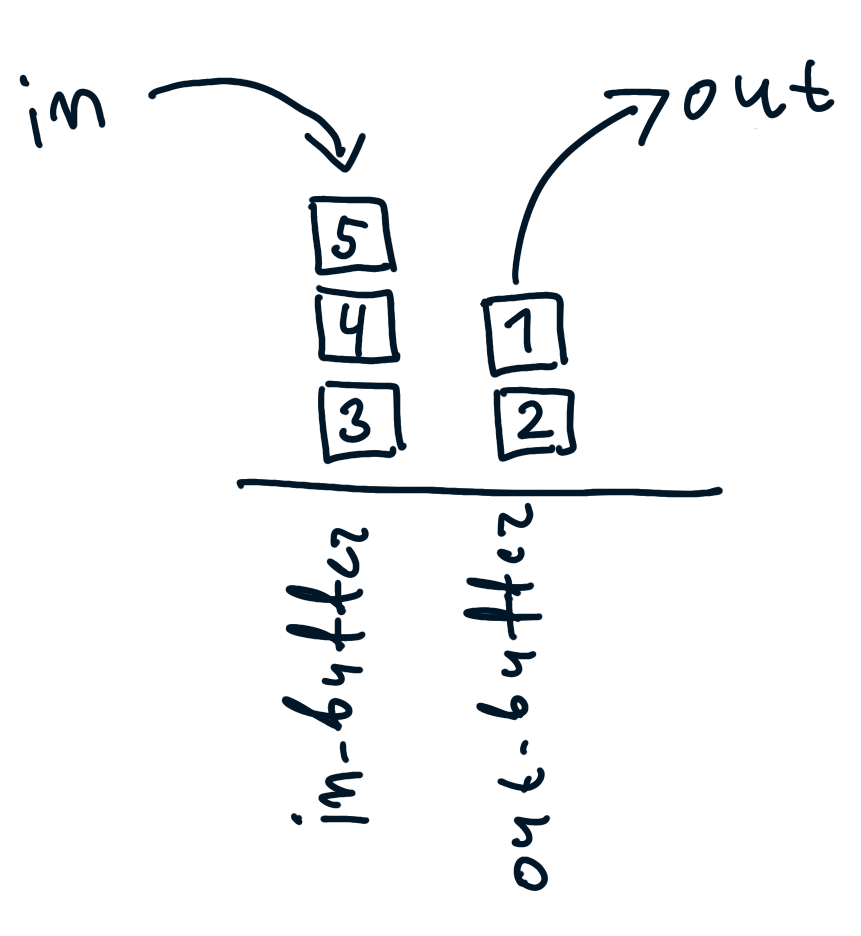 in
out
5
4
1
3
2
in-buffer
out-buffer